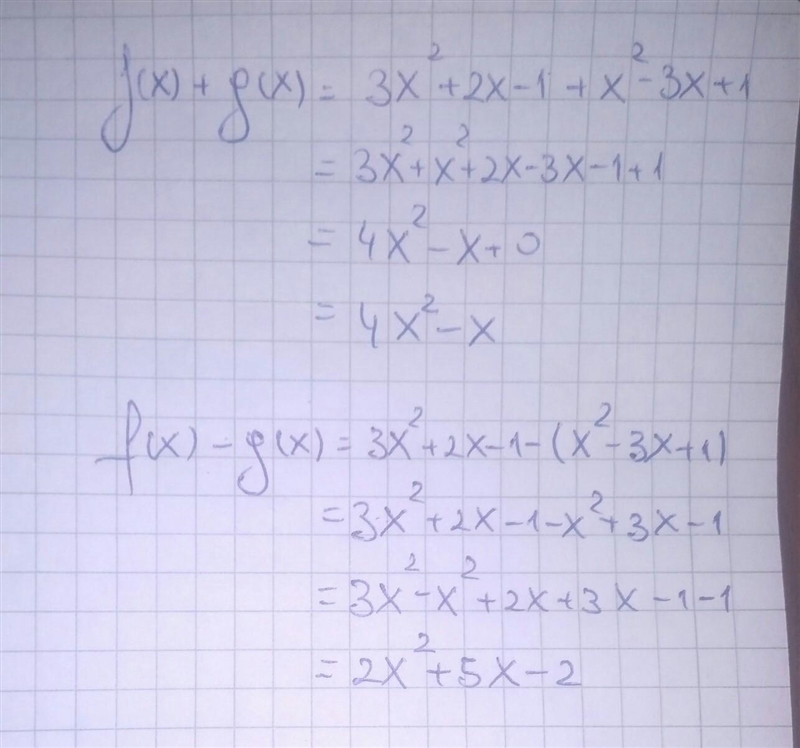 f(x) + g(x) = 3x² + 2x - 1 + x² - 3x + 1
= 3x² + x² + 2x - 3x - 1 + 1
= 4x² - x + 0
= 4x² - x
f(x) - g(x) = 3x² + 2x - 1 - (x² - 3x + 1)
= 3x² + 2x - 1 - x² + 3x - 1
= 3x² - x² + 2x + 3x - 1 - 1
= 2x² + 5x - 2